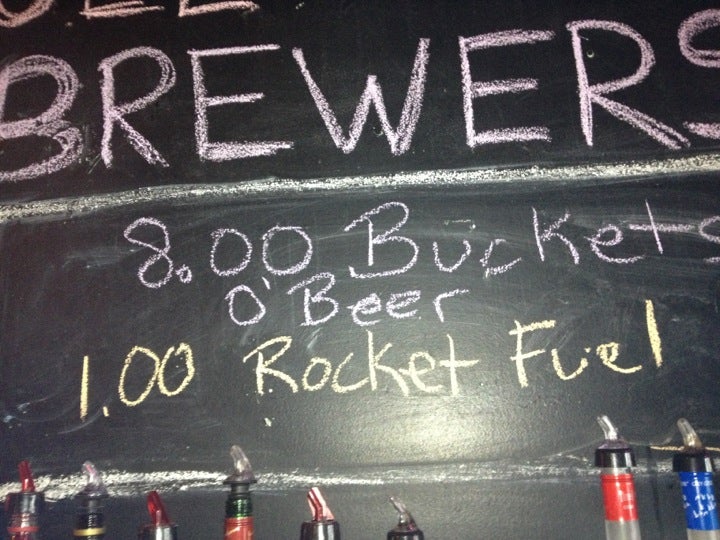 BREWERS
8.00 Buckets
O'Beer
1.00 Rocket Fuel